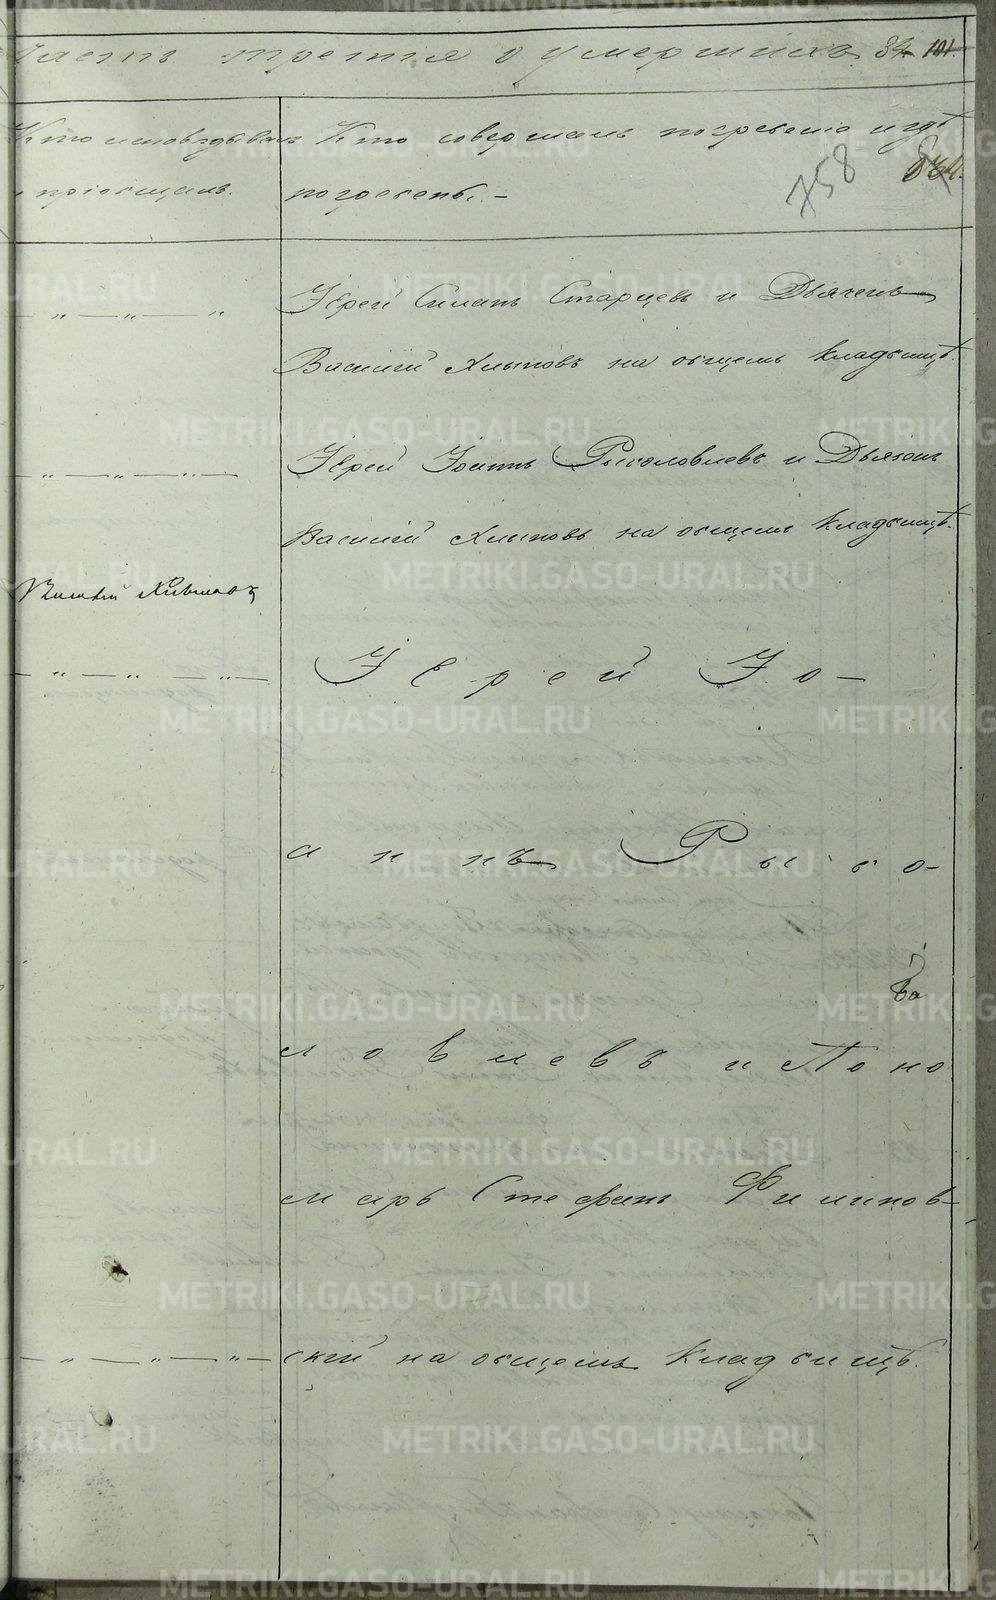 Часть третья о умершихъ. 84 101.
Кто исповѣдывалъ Кто совершалъ погребеніе и гдѣ
и пріобщалъ. погребенъ. –
758
Іерей Симонъ Старцевъ и Дьяконъ
Василій Хлыновъ на общемъ кладбищѣ.
Іерей Іоаннъ Рысоловлевъ и Дьяконъ
Василій Хлыновъ на общемъ кладбищѣ.
Василій Хлыновъ
Іерей Іо–
аннъ Рысо–
ловлевъ и Поно
марь Стефанъ Филипов–
скій на общемъ кладбищѣ.
METRIKI.GASO-URAL.RU